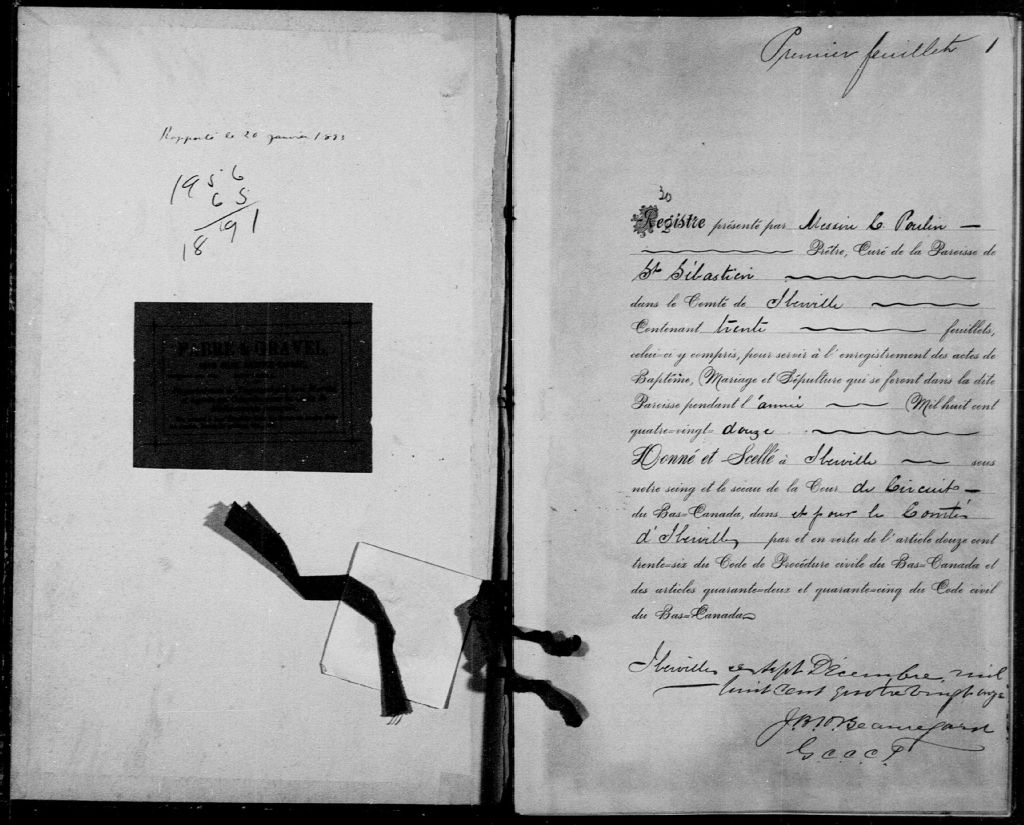 Rapporté le 20 janvier 1893
1956
65
1891
FABRE & GRAVEL,
Premier feuillet 1
30
Registre présenté par Messire L. Poulin —
Prêtre, Curé de la Paroisse de
St Sébastien
dans le Comté de Iberville
Contenant trente feuillets,
celui-ci y compris, pour servir à l'enregistrement des actes de
Baptême, Mariage et Sépulture qui se feront dans la dite
Paroisse pendant l'année Mil huit cent
quatre=vingt= douze
Donné et Scellé à Iberville sous
notre seing et le sceau de la Cour de Circuit —
du Bas=Canada, dans et pour le Comté
d'Iberville par et en vertu de l'article douze cent
trente=six du Code de Procédure civile du Bas=Canada et
des articles quarante=deux et quarante=cinq du Code civil
du Bas=Canada
Iberville ce sept Décembre mil
huit cent quatre vingt onze
Beauregard
G.C.C.C.I